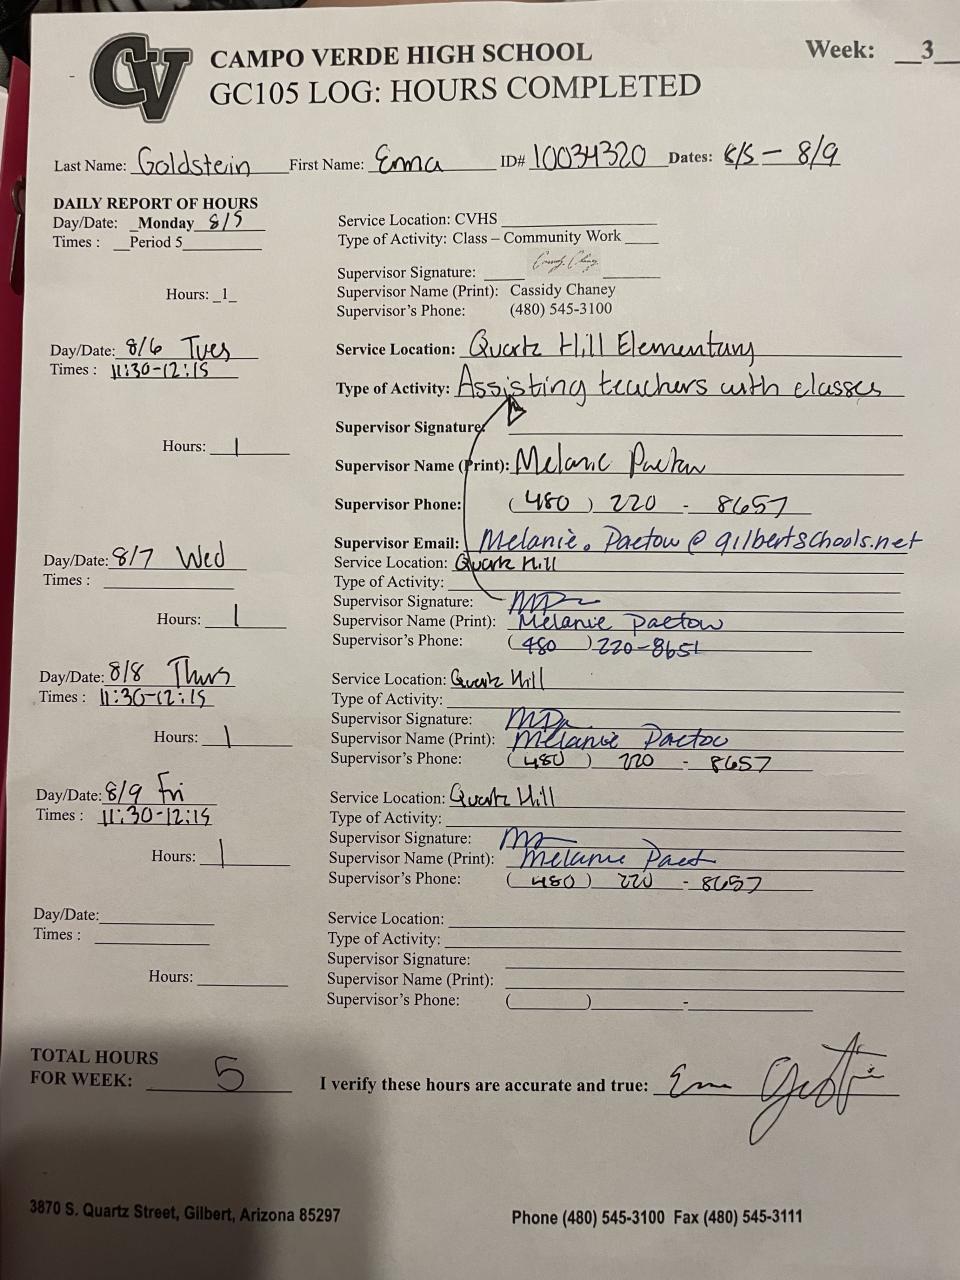 CV
CAMPO VERDE HIGH SCHOOL
Week: 3
GC105 LOG: HOURS COMPLETED
Last Name: Goldstein First Name: Emma ID# 10034320 Dates: 8/5 – 8/9
DAILY REPORT OF HOURS
Day/Date: Monday 8/5
Times : Period 5
Hours: 1
Service Location: CVHS
Type of Activity: Class – Community Work
Supervisor Signature: Cassidy Chaney
Supervisor Name (Print): Cassidy Chaney
Supervisor's Phone: (480) 545-3100
Day/Date: 8/6 Tues
Times : 11:30-12:15
Hours: 1
Service Location: Quartz Hill Elementary
Type of Activity: Assisting teachers with classes
Supervisor Signature:
Supervisor Name (Print): Melanie Paetow
Supervisor Phone: (480) 220 - 8657
Supervisor Email: Melanie.Paetow@gilbertschools.net
Day/Date: 8/7 Wed
Times :
Hours: 1
Service Location: Quartz Hill
Type of Activity:
Supervisor Signature: MP
Supervisor Name (Print): Melanie Paetow
Supervisor's Phone: (480) 220-8657
Day/Date: 8/8 Thurs
Times : 11:30-12:15
Hours: 1
Service Location: Quartz Hill
Type of Activity:
Supervisor Signature: MP
Supervisor Name (Print): Melanie Paetow
Supervisor's Phone: (480) 220 - 8657
Day/Date: 8/9 Fri
Times : 11:30-12:15
Hours: 1
Service Location: Quartz Hill
Type of Activity:
Supervisor Signature:
Supervisor Name (Print): Melanie Paet
Supervisor's Phone: (480) 220 - 8657
Day/Date:
Times :
Hours:
Service Location:
Type of Activity:
Supervisor Signature:
Supervisor Name (Print):
Supervisor's Phone: ( ) -
TOTAL HOURS
FOR WEEK: 5
I verify these hours are accurate and true:
3870 S. Quartz Street, Gilbert, Arizona 85297
Phone (480) 545-3100 Fax (480) 545-3111